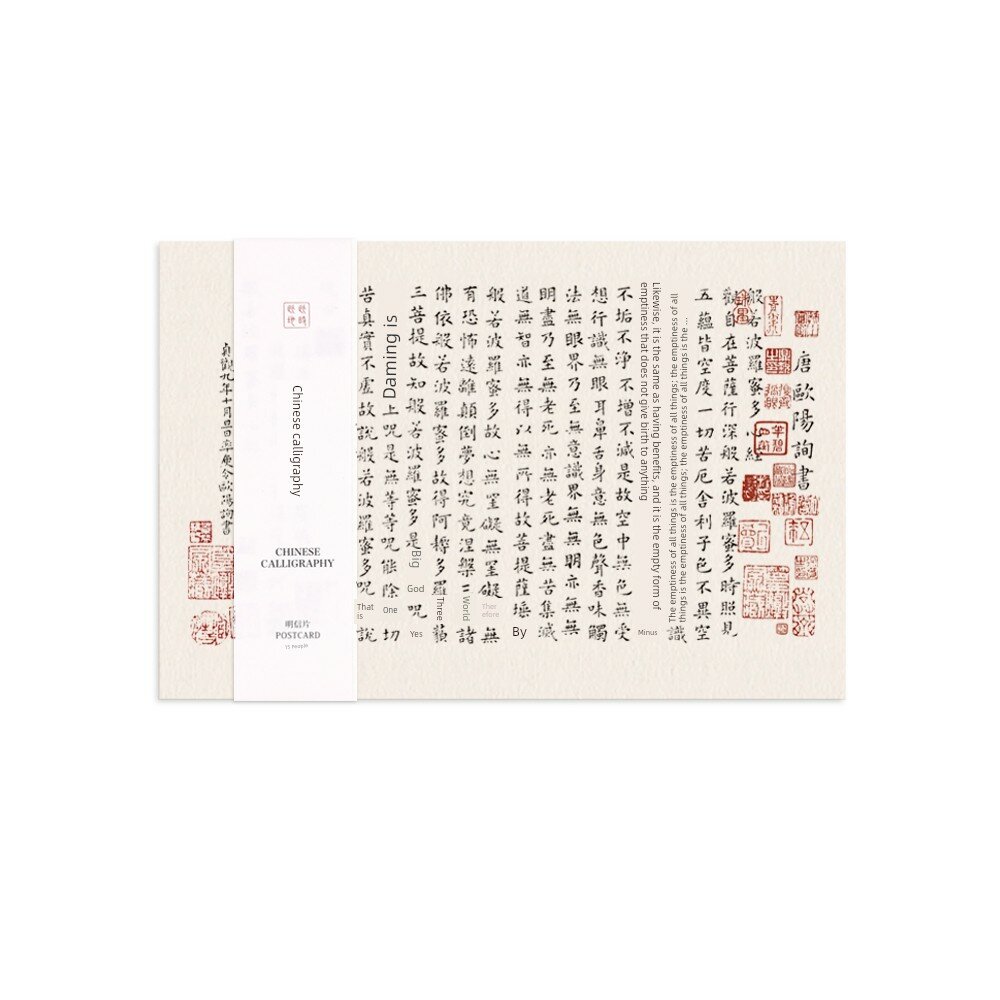 唐歐陽詢書
般若波羅蜜多心經
觀自在菩薩行深般若波羅蜜多時照見
五蘊皆空度一切苦厄舍利子色不異空
The emptiness of all things is the emptiness of all things; the emptiness of all
things is the emptiness of all things; the emptiness of all things is the ...
識
Likewise, it is the same as having benefits, and it is the empty form of
emptiness that does not give birth to anything
Minus
不垢不淨不增不減是故空中無色無受
想行識無眼耳鼻舌身意無色聲香味觸
法無眼界乃至無意識界無無明亦無無
明盡乃至無老死亦無老死盡無苦集滅
道無智亦無得以無所得故菩提薩埵 By
般若波羅蜜多故心無罣礙無罣礙
Ther
efore
無
有恐怖遠離顛倒夢想究竟涅槃三 World 諸
佛依般若波羅蜜多故得阿耨多羅 Three 藐
三菩提故知般若波羅蜜多是 Big
God 咒
Yes
Daming is 上咒是無等等咒能除 One 切
苦真實不虛故說般若波羅蜜多咒
That
is
說
Chinese calligraphy
CHINESE
CALLIGRAPHY
明信片
POSTCARD
YS People
貞觀九年十月旦日率更令歐陽詢書